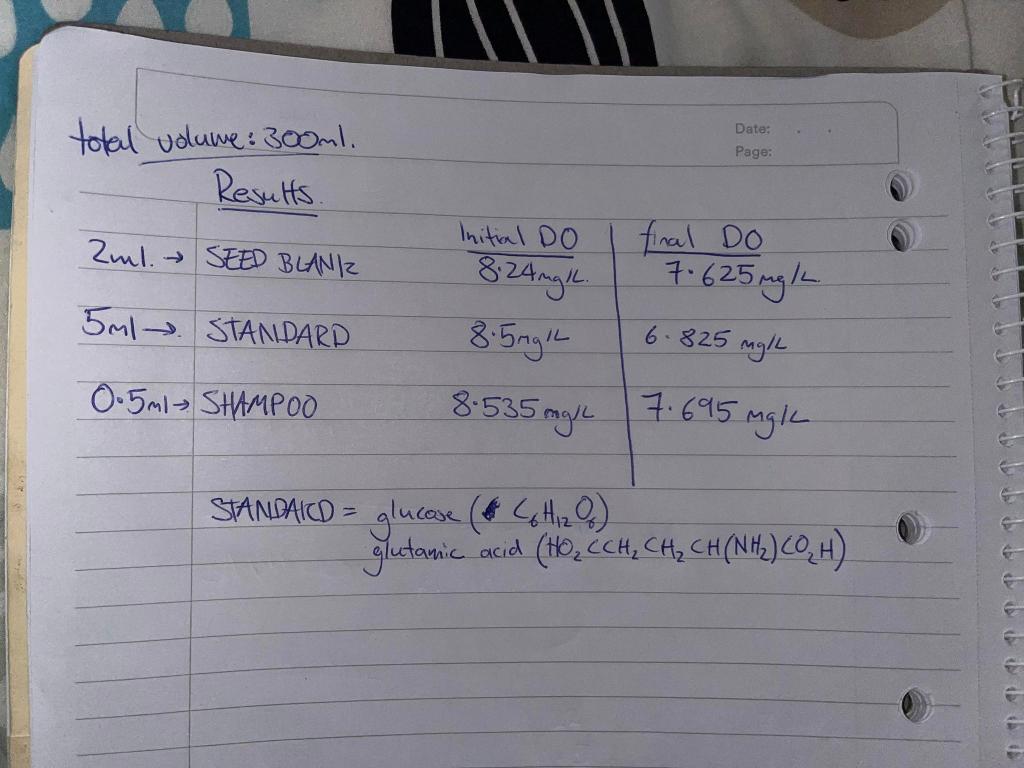 total volume: 300ml.
Date: . .
Page:
Results.
Initial DO final DO
2ml. → SEED BLANK 8.24mg/L. 7.625mg/L
5ml → STANDARD 8.5mg/L 6.825 mg/L
0.5ml → SHAMPOO 8.535mg/L 7.695 mg/L
STANDARD = glucose (C₆H₁₂O₆)
glutamic acid (HO₂CCH₂CH₂CH(NH₂)CO₂H)